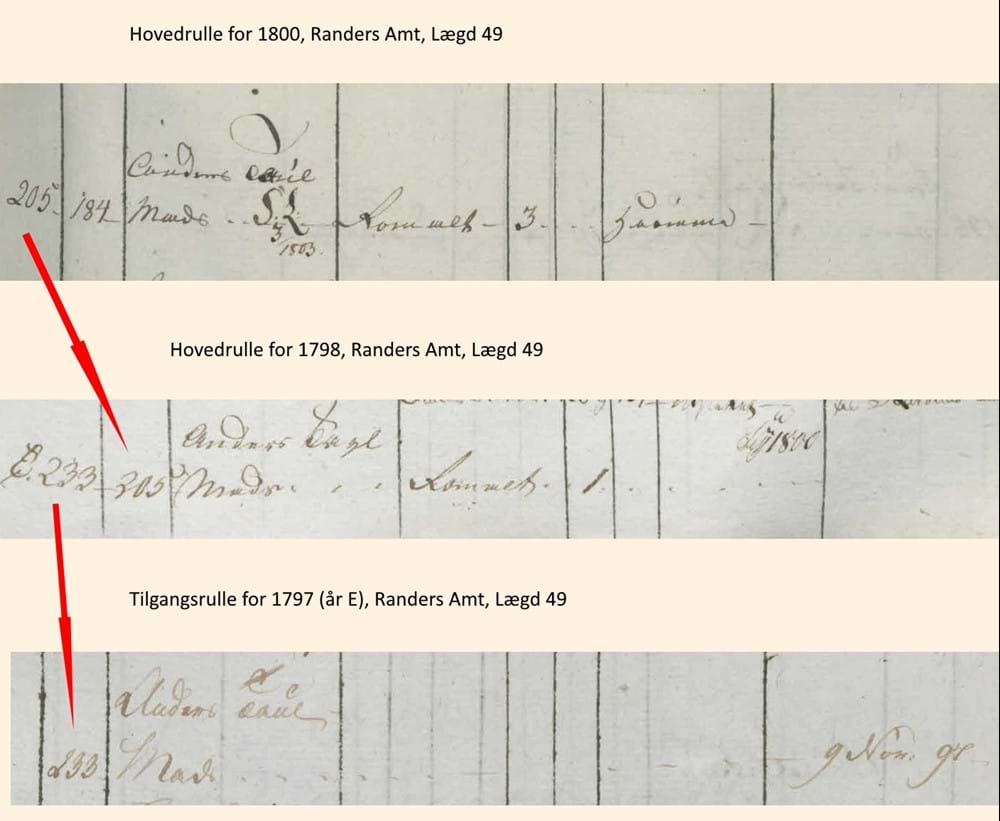 Hovedrulle for 1800, Randers Amt, Lægd 49
Anders
205 184 Mads Rommelt 3 hiemme
1803
Hovedrulle for 1798, Randers Amt, Lægd 49
Anders 1800
E. 233 205 Mads Rommelt 1
Tilgangsrulle for 1797 (år E), Randers Amt, Lægd 49
Anders
233 Mads 9 Nov. 97